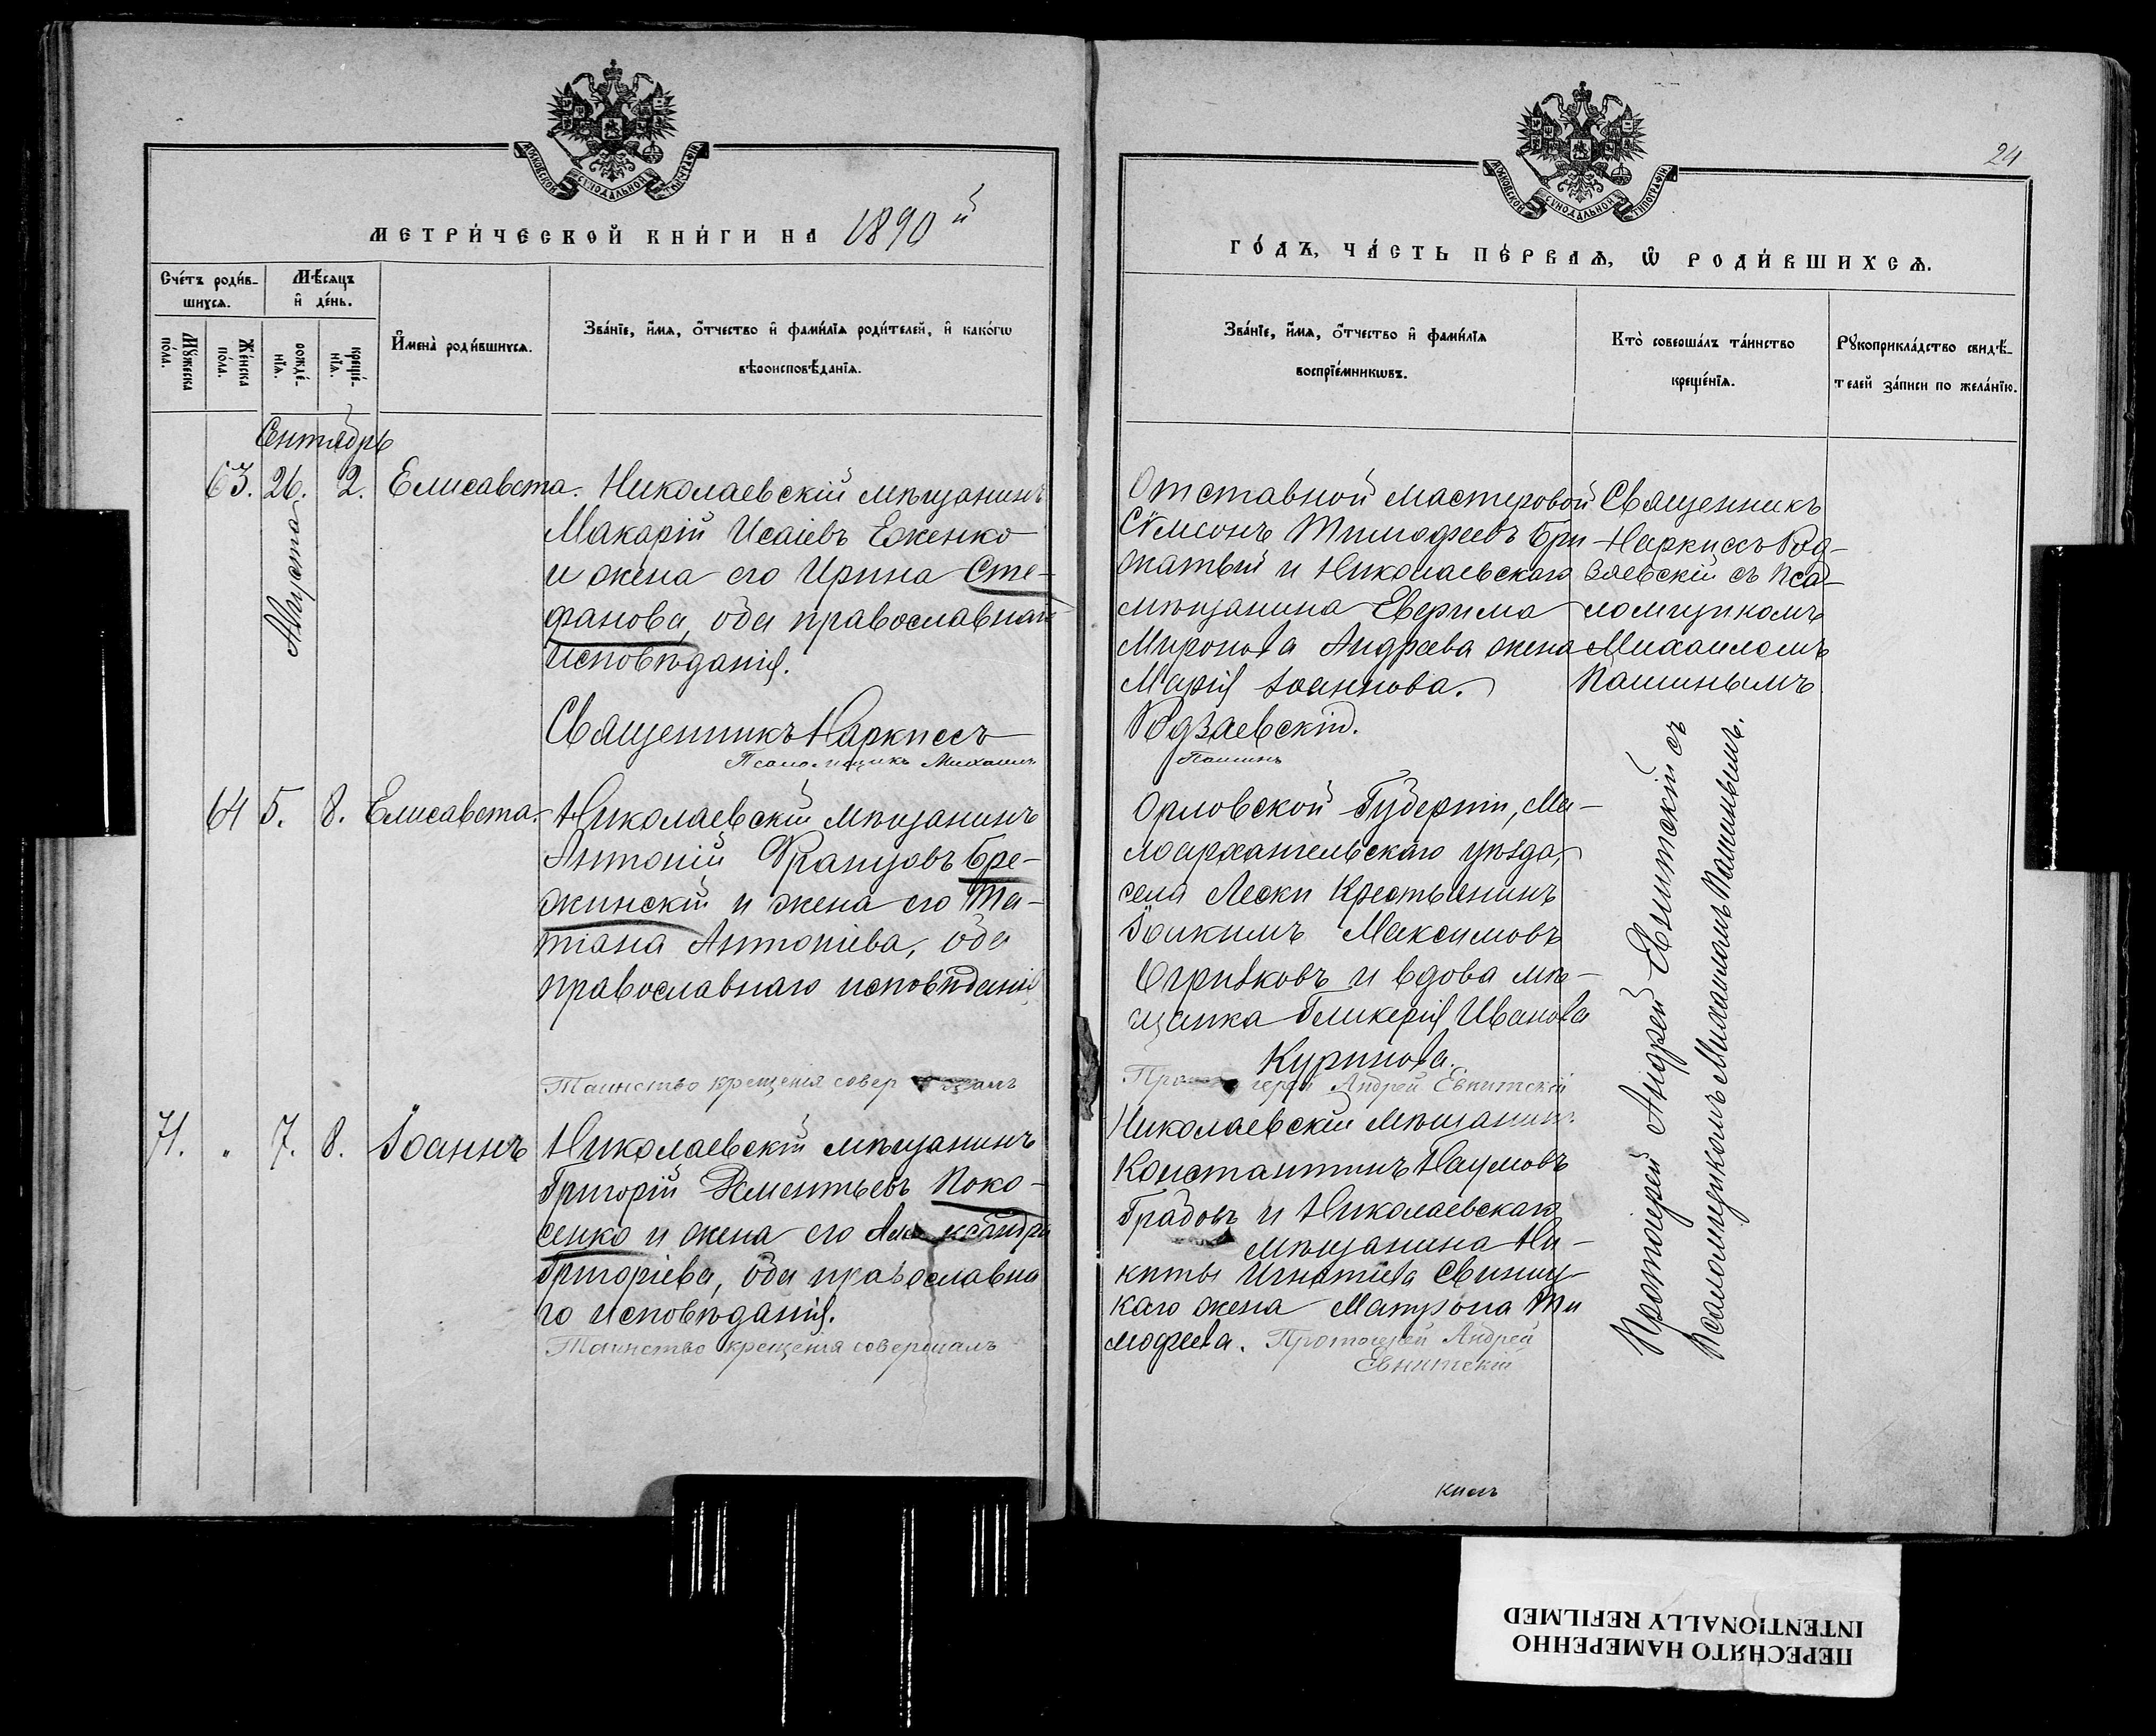 МОСКОВСКОЙ СѴНОДАЛЬНОЙ ТИПОГРАФІИ
МЕТРИ́ЧЕСКОЙ КНИ́ГИ НА 1890 й
Сче́тъ роди́в-
шихся.
Мѣ́сяцъ
и҆ де́нь.
Мꙋ́жеска
по́ла.
Же́нска
по́ла.
рожде́-
нїѧ.
креще́-
нїѧ.
И҆мена̀ роди́вшихсѧ.
Зва́нїе, и҆́мѧ, о҆́тчество и҆ фами́лїѧ роди́телей, и҆ како́гѡ
вѣроисповѣ́данїѧ.
Сентябрь
63. 26. 2. Елисавета.
Августа
Николаевскій мѣщанинъ
Макарій Исаіевъ Еженко
и жена его Ирина Сте-
фанова, оба православнаго
исповѣданія.
Священникъ Наркиссъ
Псаломщикъ Михаилъ
64 5. 8. Елисавета.
Николаевскій мѣщанинъ
Антоній Францовъ Бре-
жинскій и жена его Та-
тіана Антоніева, оба
православнаго исповѣданія
Таинство крещенія совершалъ
71. " 7. 8. Іоаннъ
Николаевскій мѣщанинъ
Григорій Климентьевъ Поко-
сенко и жена его Александра
Григоріева, оба православна
го исповѣданія.
Таинство крещенія совершалъ
МОСКОВСКОЙ СѴНОДАЛЬНОЙ ТИПОГРАФІИ
24
ГО́ДЪ, ЧА́СТЬ ПЕ́РВАѦ, Ѡ҆ РОДИ́ВШИХСѦ.
Зва́нїе, и҆́мѧ, о҆́тчество и҆ фами́лїѧ
воспрїе́мникѡвъ.
Кто̀ соверша́лъ та́инство
креще́нїѧ.
Рꙋкоприкла́дство свидѣ́-
телей за́писи по жела́нїю.
Отставной мастеровой
Сѵмеонъ Тимофеевъ Бри
жатый и Николаевскаго
мѣщанина
Миронова Андреева жена
Марія Іоаннова.
Родзаевскій.
Пашинъ
Священникъ
Наркиссъ Род-
заевскій съ Псал-
ломщикомъ
Михаиломъ
Пашинымъ
Орловской Губерніи, Ма-
лоархангельскаго уѣзда,
села Лески Крестьянинъ
Іоакимъ Максимовъ
Огрызковъ и вдова мѣ-
щанка Гликерія Иванова
Куринова.
Протоіерей Андрей Евнитскій
Николаевскій мѣщанинъ
Константинъ Наумовъ
Градовъ и Николаевскаго
мѣщанина Ни-
киты Игнатіева Свиниц-
каго жена Матрона Ти
мофеева. Протоіерей Андрей
Евнитскій
Протоіерей Андрей Евнитскій съ
Псаломщикомъ Михаиломъ Пашинымъ.
ПЕРЕСНЯТО НАМЕРЕННО
INTENTIONALLY REFILMED